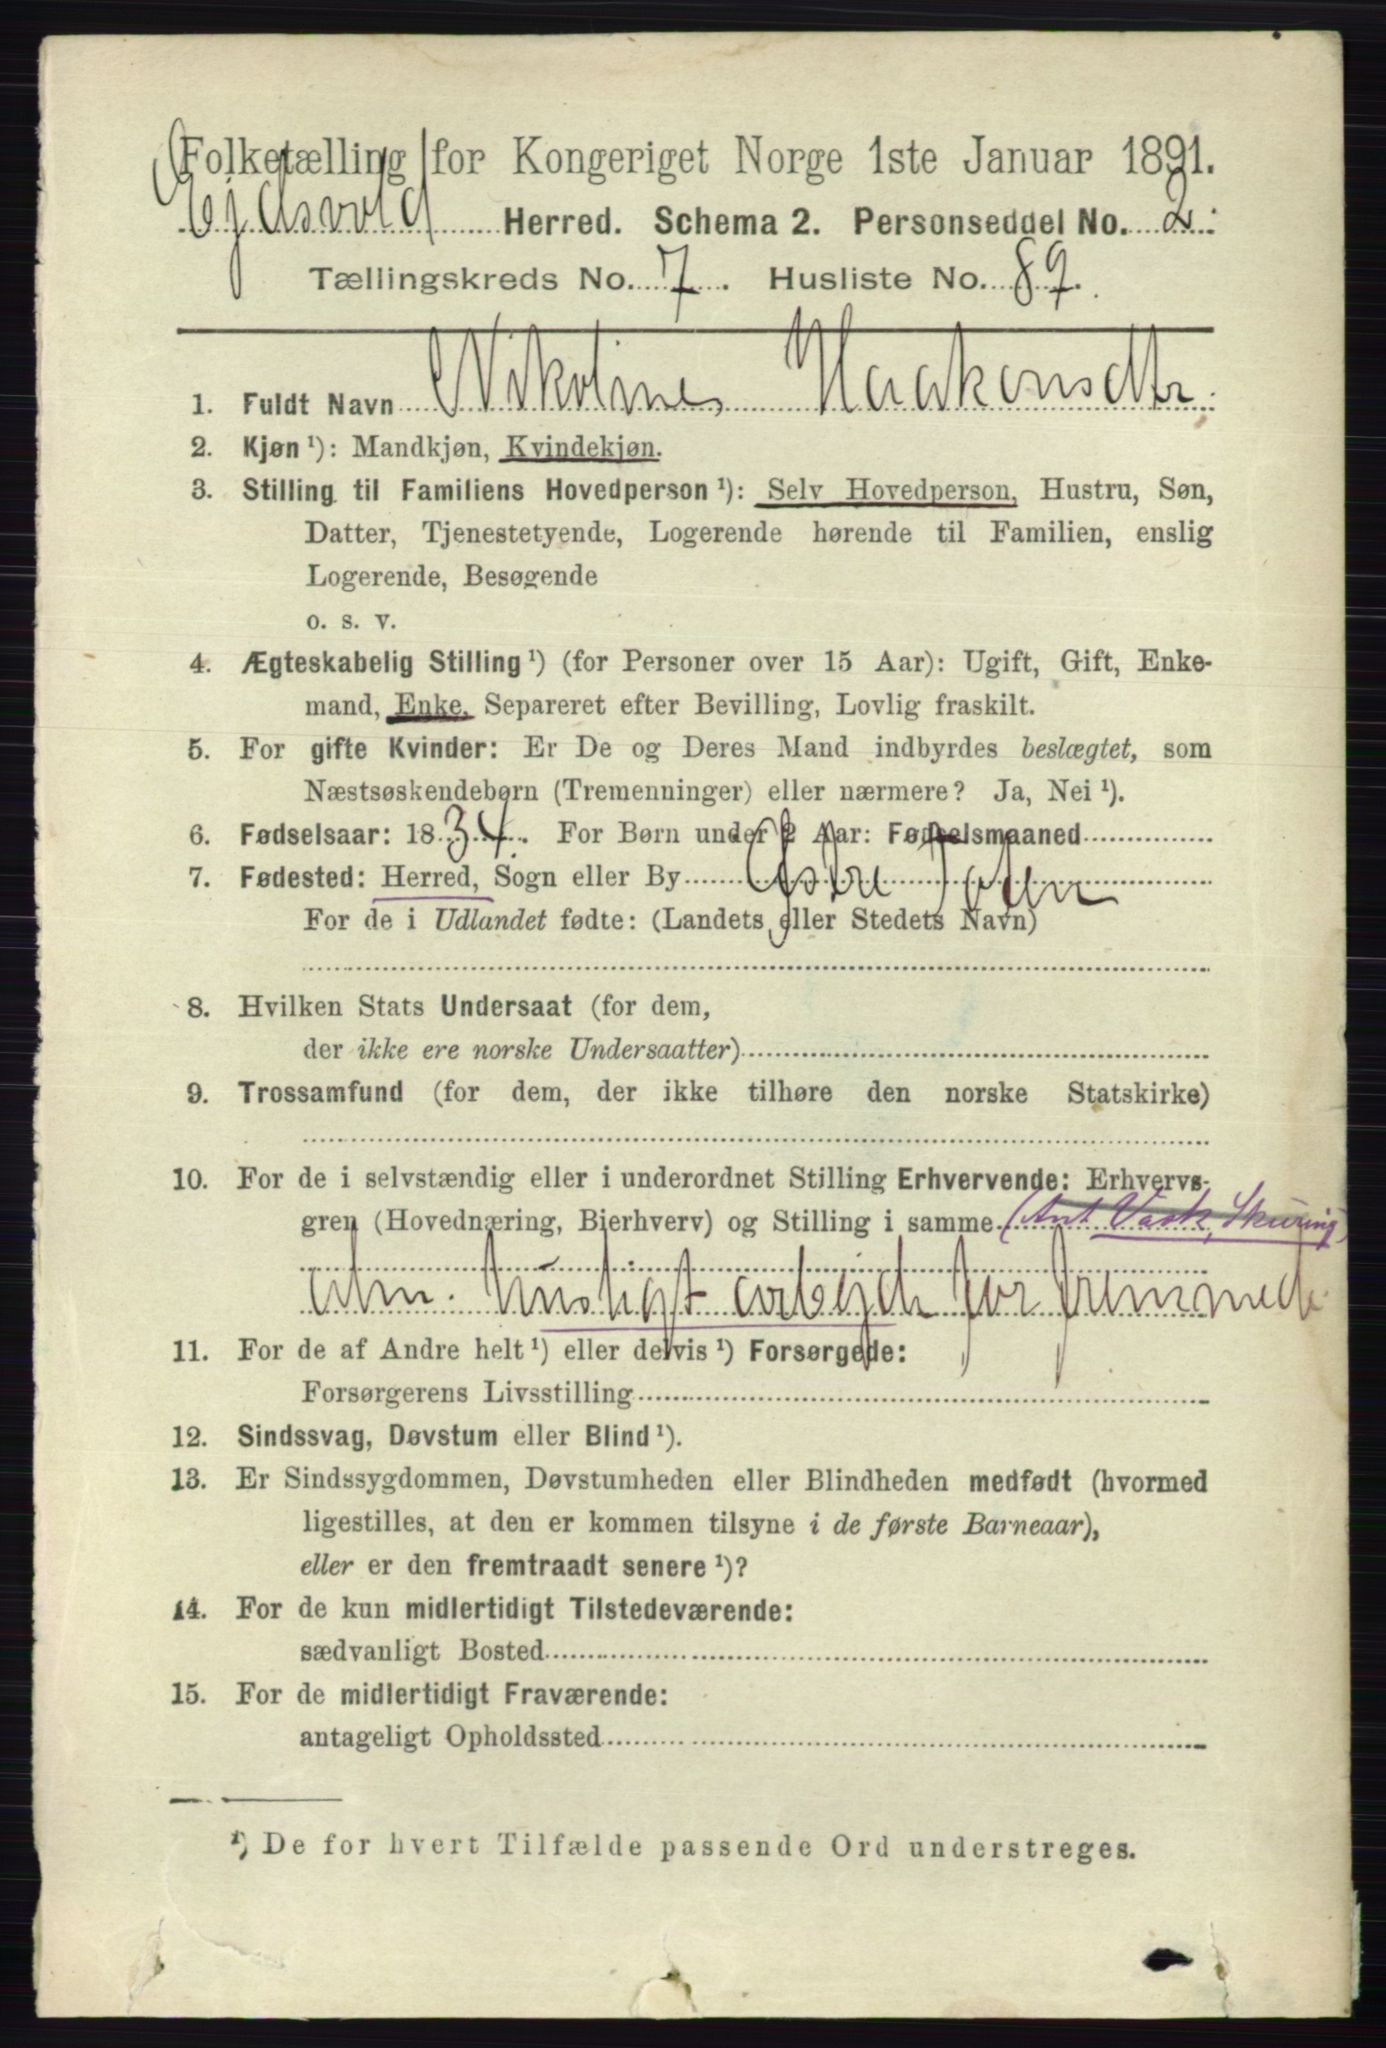 Folketælling for Kongeriget Norge 1ste Januar 1891.
Ejdsvold Herred. Schema 2. Personseddel No. 2.
Tællingskreds No. 7. Husliste No. 89.
1. Fuldt Navn Nikoline Haakensdtr
2. Kjøn ¹): Mandkjøn, Kvindekjøn.
3. Stilling til Familiens Hovedperson ¹): Selv Hovedperson, Hustru, Søn,
Datter, Tjenestetyende, Logerende hørende til Familien, enslig
Logerende, Besøgende
o. s. v.
4. Ægteskabelig Stilling ¹) (for Personer over 15 Aar): Ugift, Gift, Enke-
mand, Enke, Separeret efter Bevilling, Lovlig fraskilt.
5. For gifte Kvinder: Er De og Deres Mand indbyrdes beslægtet, som
Næstsøskendebørn (Tremenninger) eller nærmere? Ja, Nei ¹).
6. Fødselsaar: 1834. For Børn under 2 Aar: Fødselsmaaned
7. Fødested: Herred, Sogn eller By Østre Toten
For de i Udlandet fødte: (Landets eller Stedets Navn)
8. Hvilken Stats Undersaat (for dem,
der ikke ere norske Undersaatter)
9. Trossamfund (for dem, der ikke tilhøre den norske Statskirke)
10. For de i selvstændig eller i underordnet Stilling Erhvervende: Erhvervs-
gren (Hovednæring, Bierhverv) og Stilling i samme (Ant Vask, Skuring)
alm. husligt arbejde for fremmede
11. For de af Andre helt ¹) eller delvis ¹) Forsørgede:
Forsørgerens Livsstilling
12. Sindssvag, Døvstum eller Blind ¹).
13. Er Sindssygdommen, Døvstumheden eller Blindheden medfødt (hvormed
ligestilles, at den er kommen tilsyne i de første Barneaar),
eller er den fremtraadt senere ¹)?
14. For de kun midlertidigt Tilstedeværende:
sædvanligt Bosted
15. For de midlertidigt Fraværende:
antageligt Opholdssted
¹) De for hvert Tilfælde passende Ord understreges.